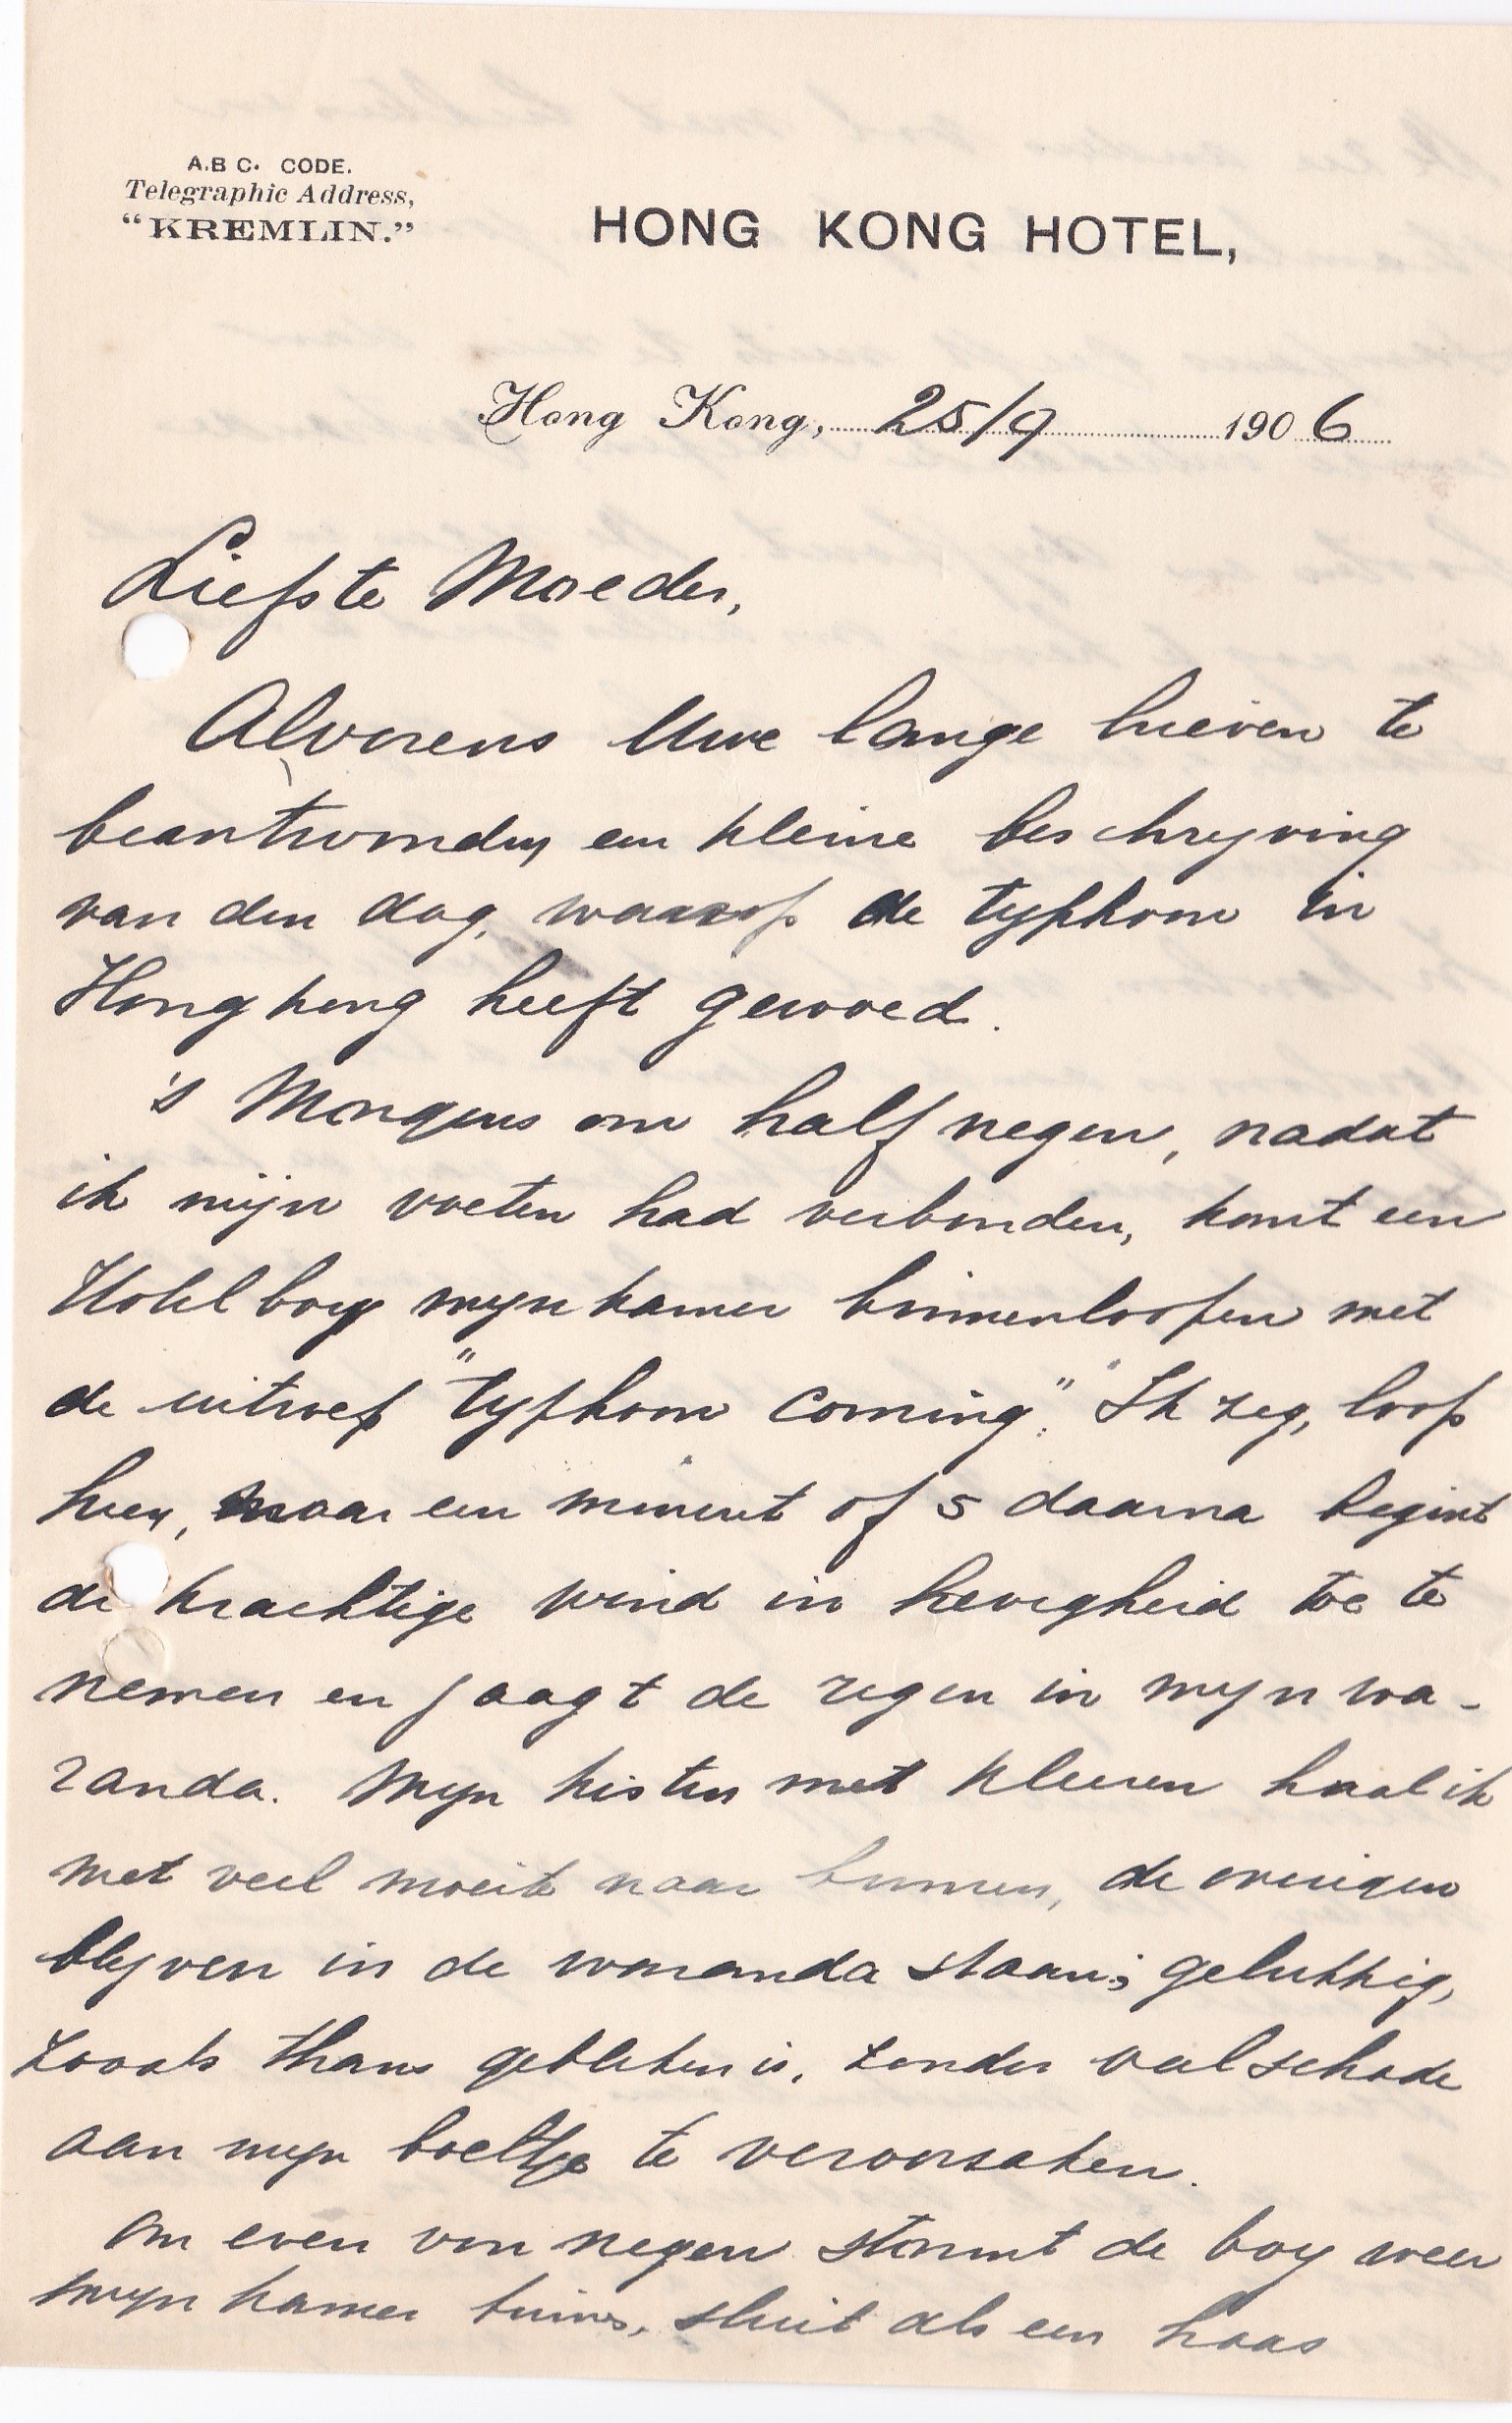 A.B C. CODE.
Telegraphic Address,
"KREMLIN."
HONG KONG HOTEL,
Hong Kong, 25/9 1906
Liefste Moeder,
Alvorens Uwe lange brieven te
beantwoorden een kleine beschryving
van den dag, waarop de typhoon in
Hongkong heeft gewoed.
's Morgens om half negen, nadat
ik mijn voeten had verbonden, komt een
Hotel boy mijn kamer binnenloopen met
de uitroep "typhoon coming". Ik zeg, loop
heen, maar een minuut of 5 daarna begint
de krachtige wind in hevigheid toe te
nemen en jaagt de regen in mijn wa-
randa. Mijn kisten met kleeren haal ik
met veel moeite naar binnen, de overigen
blyven in de waranda staan; gelukkig,
zooals thans gebleken is, zonder veel schade
aan mijn boeltje te veroorsaken.
Om even voor negen stormt de boy weer
mijn kamer binnen, sluit als een haas